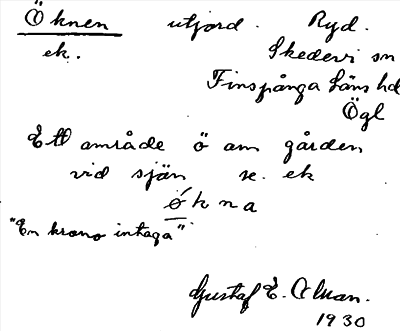 Öknen utjord. Ryd.
ek. Skedevi sn
Finspånga läns hd
Ögl
Ett område ö om gården
vid sjön se. ek
ökna
"En krono intaga"
Gustaf E. Alman.
1930